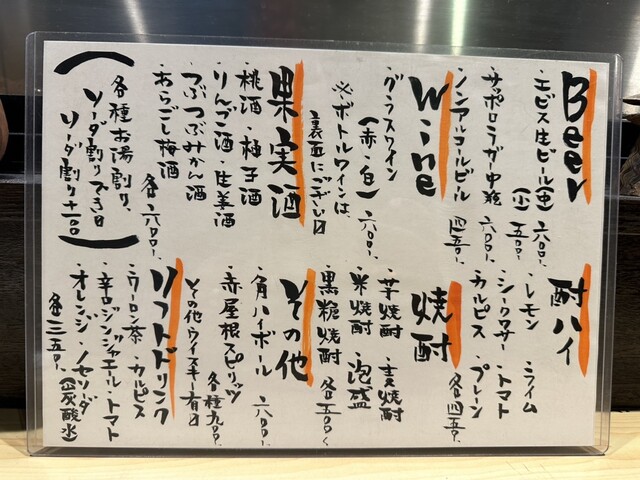 Beer
・エビス生ビール(中) 六〇〇、
(小) 五〇〇、
・サッポロラガー中瓶 六〇〇、
・ノンアルコールビール 四五〇、
Wine
・グラスワイン
(赤・白) 六〇〇、
※ボトルワインは、
裏面にございます
果実酒
・桃酒 ・柚子酒
・りんご酒 ・生姜酒
・つぶつぶみかん酒
・あらごし梅酒
各、六〇〇、
(各種お湯割り、
ソーダ割りできます
ソーダ割り+一〇〇)
酎ハイ
・レモン ・ライム
・シークワサー ・トマト
・カルピス ・プレーン
各四五〇、
焼酎
・芋焼酎 ・麦焼酎
・米焼酎 ・泡盛
・黒糖焼酎 各五〇〇、
その他
・角ハイボール 六〇〇、
・赤屋根スピリッツ
各種九〇〇、
その他ウイスキー有ます
ソフトドリンク
・ウーロン茶 ・カルピス
・辛口ジンジャエール ・トマト
・オレンジ ・ノセソーダ
各三五〇、 (炭酸水)